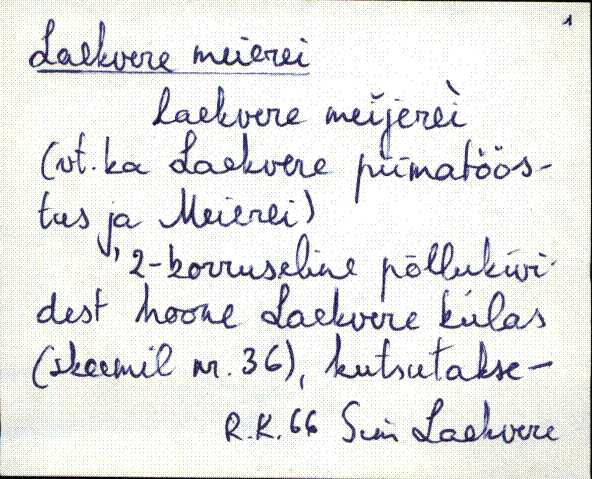 1
Laekvere meierei
Laekvere meijerèi
(vt. ka Laekvere piimatöös-
tus ja Meierei)
, 2-korruseline põllukivi-
dest hoone Laekvere külas
(skeemil nr. 36), kutsutakse-
R.K. 66 Sim Laekvere